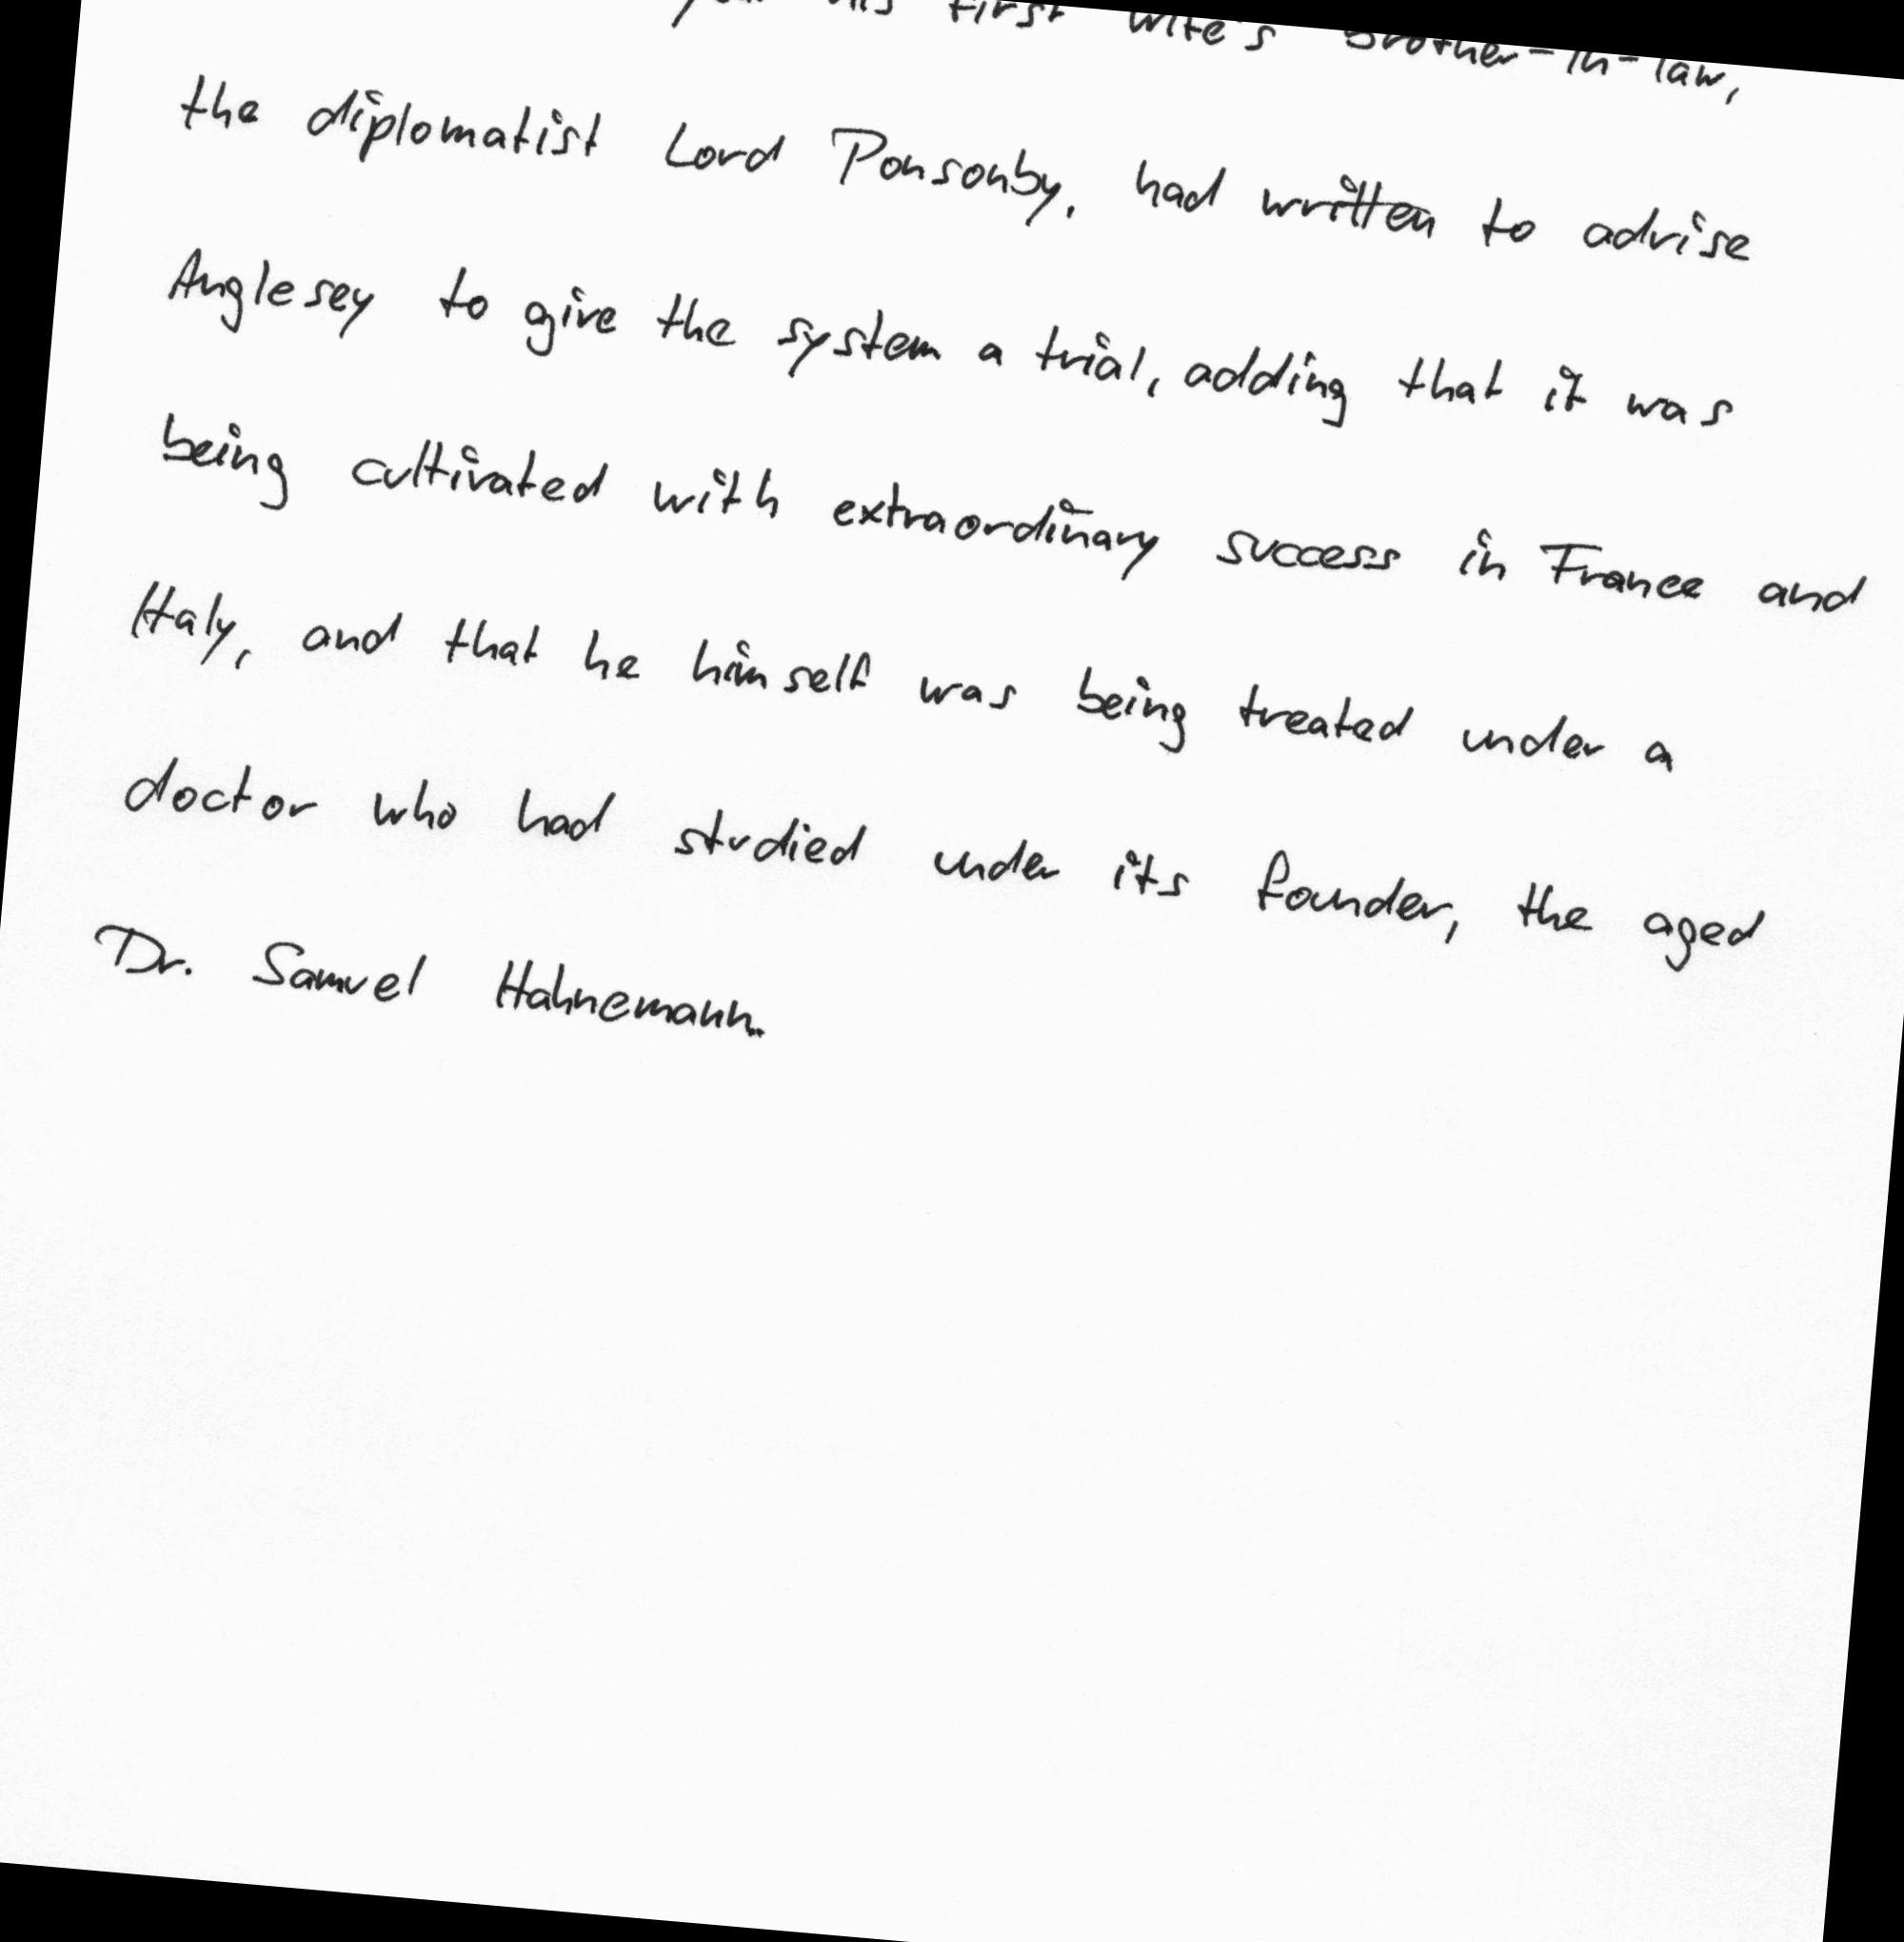 his first wife's brother-in-law,
the diplomatist Lord Ponsonby, had written to advise
Anglesey to give the system a trial, adding that it was
being cultivated with extraordinary success in France and
Italy, and that he himself was being treated under a
doctor who had studied under its founder, the aged
Dr. Samuel Hahnemann.